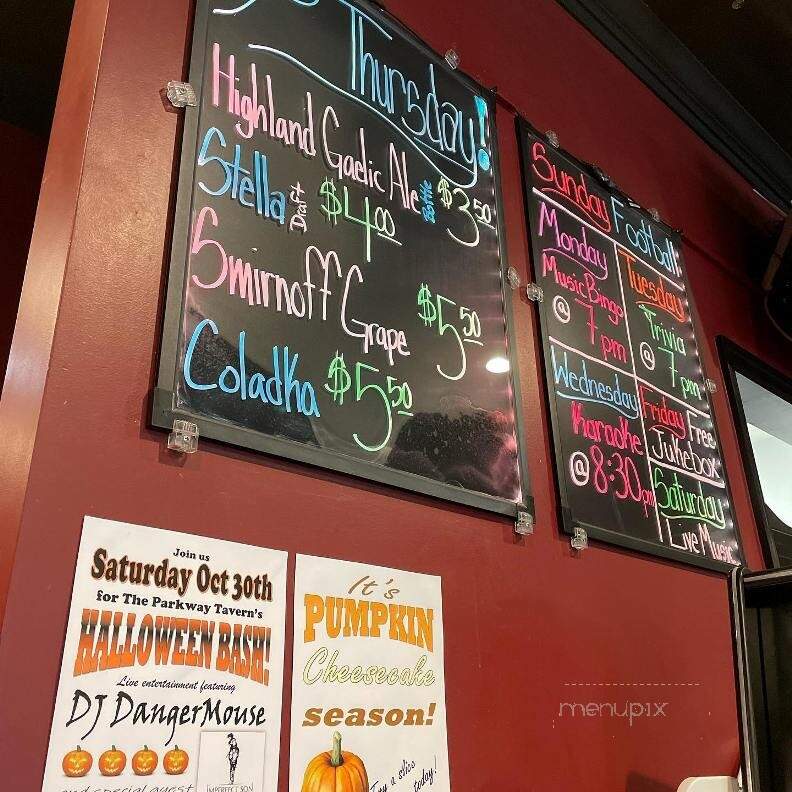 Thursday!
Highland Gaelic Ale Bottle $3.50
Stella Draft $4.00
Smirnoff Grape $5.50
Coladka $5.50
Sunday Football!
Monday
Music Bingo
@ 7 pm
Tuesday
Trivia
@ 7 pm
Wednesday
Karaoke
@ 8:30 pm
Friday Free
Jukebox
Saturday
Live Music
Join us
Saturday Oct 30th
for The Parkway Tavern's
HALLOWEEN BASH!
Live entertainment featuring
DJ DangerMouse
and special guest
IMPERFECT SON
It's
PUMPKIN
Cheesecake
season!
Try a slice
today!
menupix